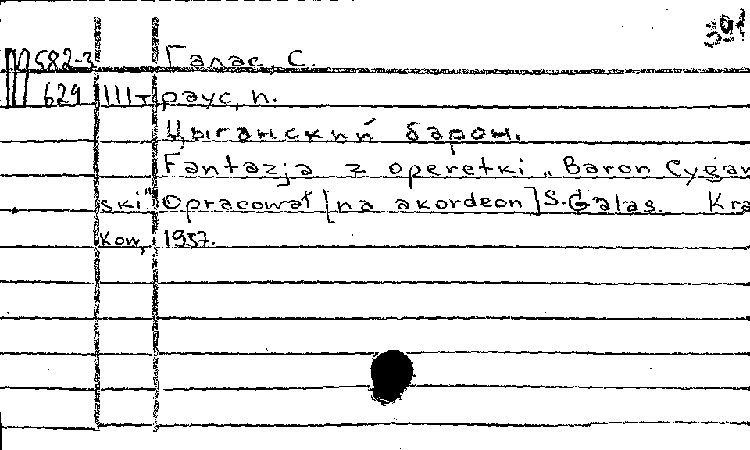 391
П582-3 Галас, С.
629 Штраус, И.
Цыганский барон.
Fantazja z operetki „Baron Cygań
ski" Opracował [na akordeon] S. Galas. Kra
ków, 1957.